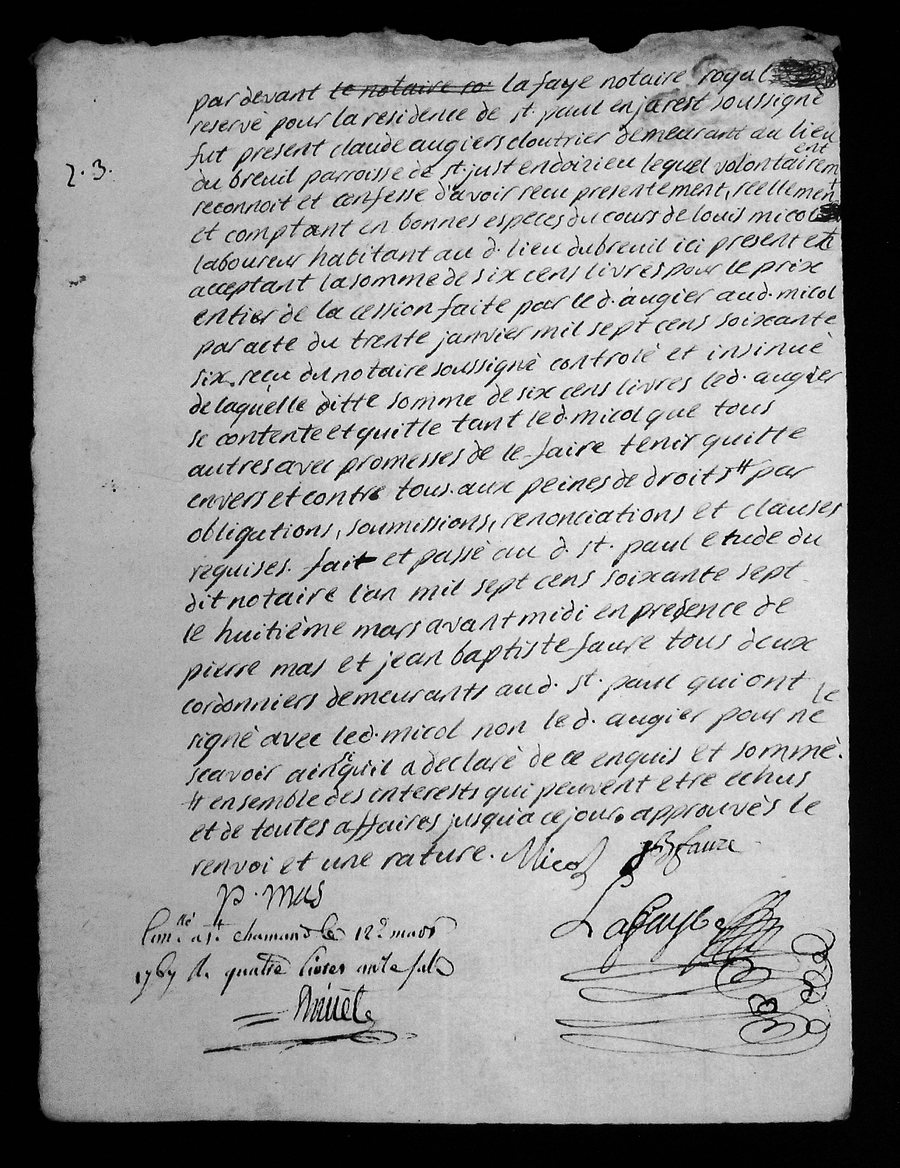 par devant le notaire ro la faye notaire royal
reservé pour la residence de st. paul en jarest soussigné
fut present claude augiers cloutrier demeurant au lieu
du breuil parroisse de st. just en doizieu lequel volontairement
2. 3.
reconnoit et confesse d'avoir recu presentement, reellement
et comptant en bonnes especes du cours de louis micol
laboureur habitant au d. lieu du breuil ici present et
acceptant la somme de six cens livres pour le prix
entier de la cession faite par led. augier aud. micol
par acte du trente janvier mil sept cens soixante
six, reçu du notaire soussigné controlé et insinué
de laquelle ditte somme de six cens livres led. augier
se contente et quitte tant led. micol que tous
autres avec promesses de le faire tenir quitte
envers et contre tous. aux peines de droits # par
obligations, soumissions, renonciations et clauses
requises. fait et passé au d. st. paul etude du
dit notaire l'an mil sept cens soixante sept
le huitième mars avant midi en presence de
pierre mas et jean baptiste faure tous deux
cordonniers demeurants aud. st. paul qui ont
signé avec led. micol non led. augier pour ne le
scavoir ainsi qu'il a declaré de ce enquis et sommé.
# ensemble des interests qui peuvent etre echus
et de toutes affaires jusqu'a ce jour. approuvés le
renvoi et une rature. Micol jb faure
p. mas
Lafaye
Con.llé a st. chamand le 12e mars
1767 R. quatre livres